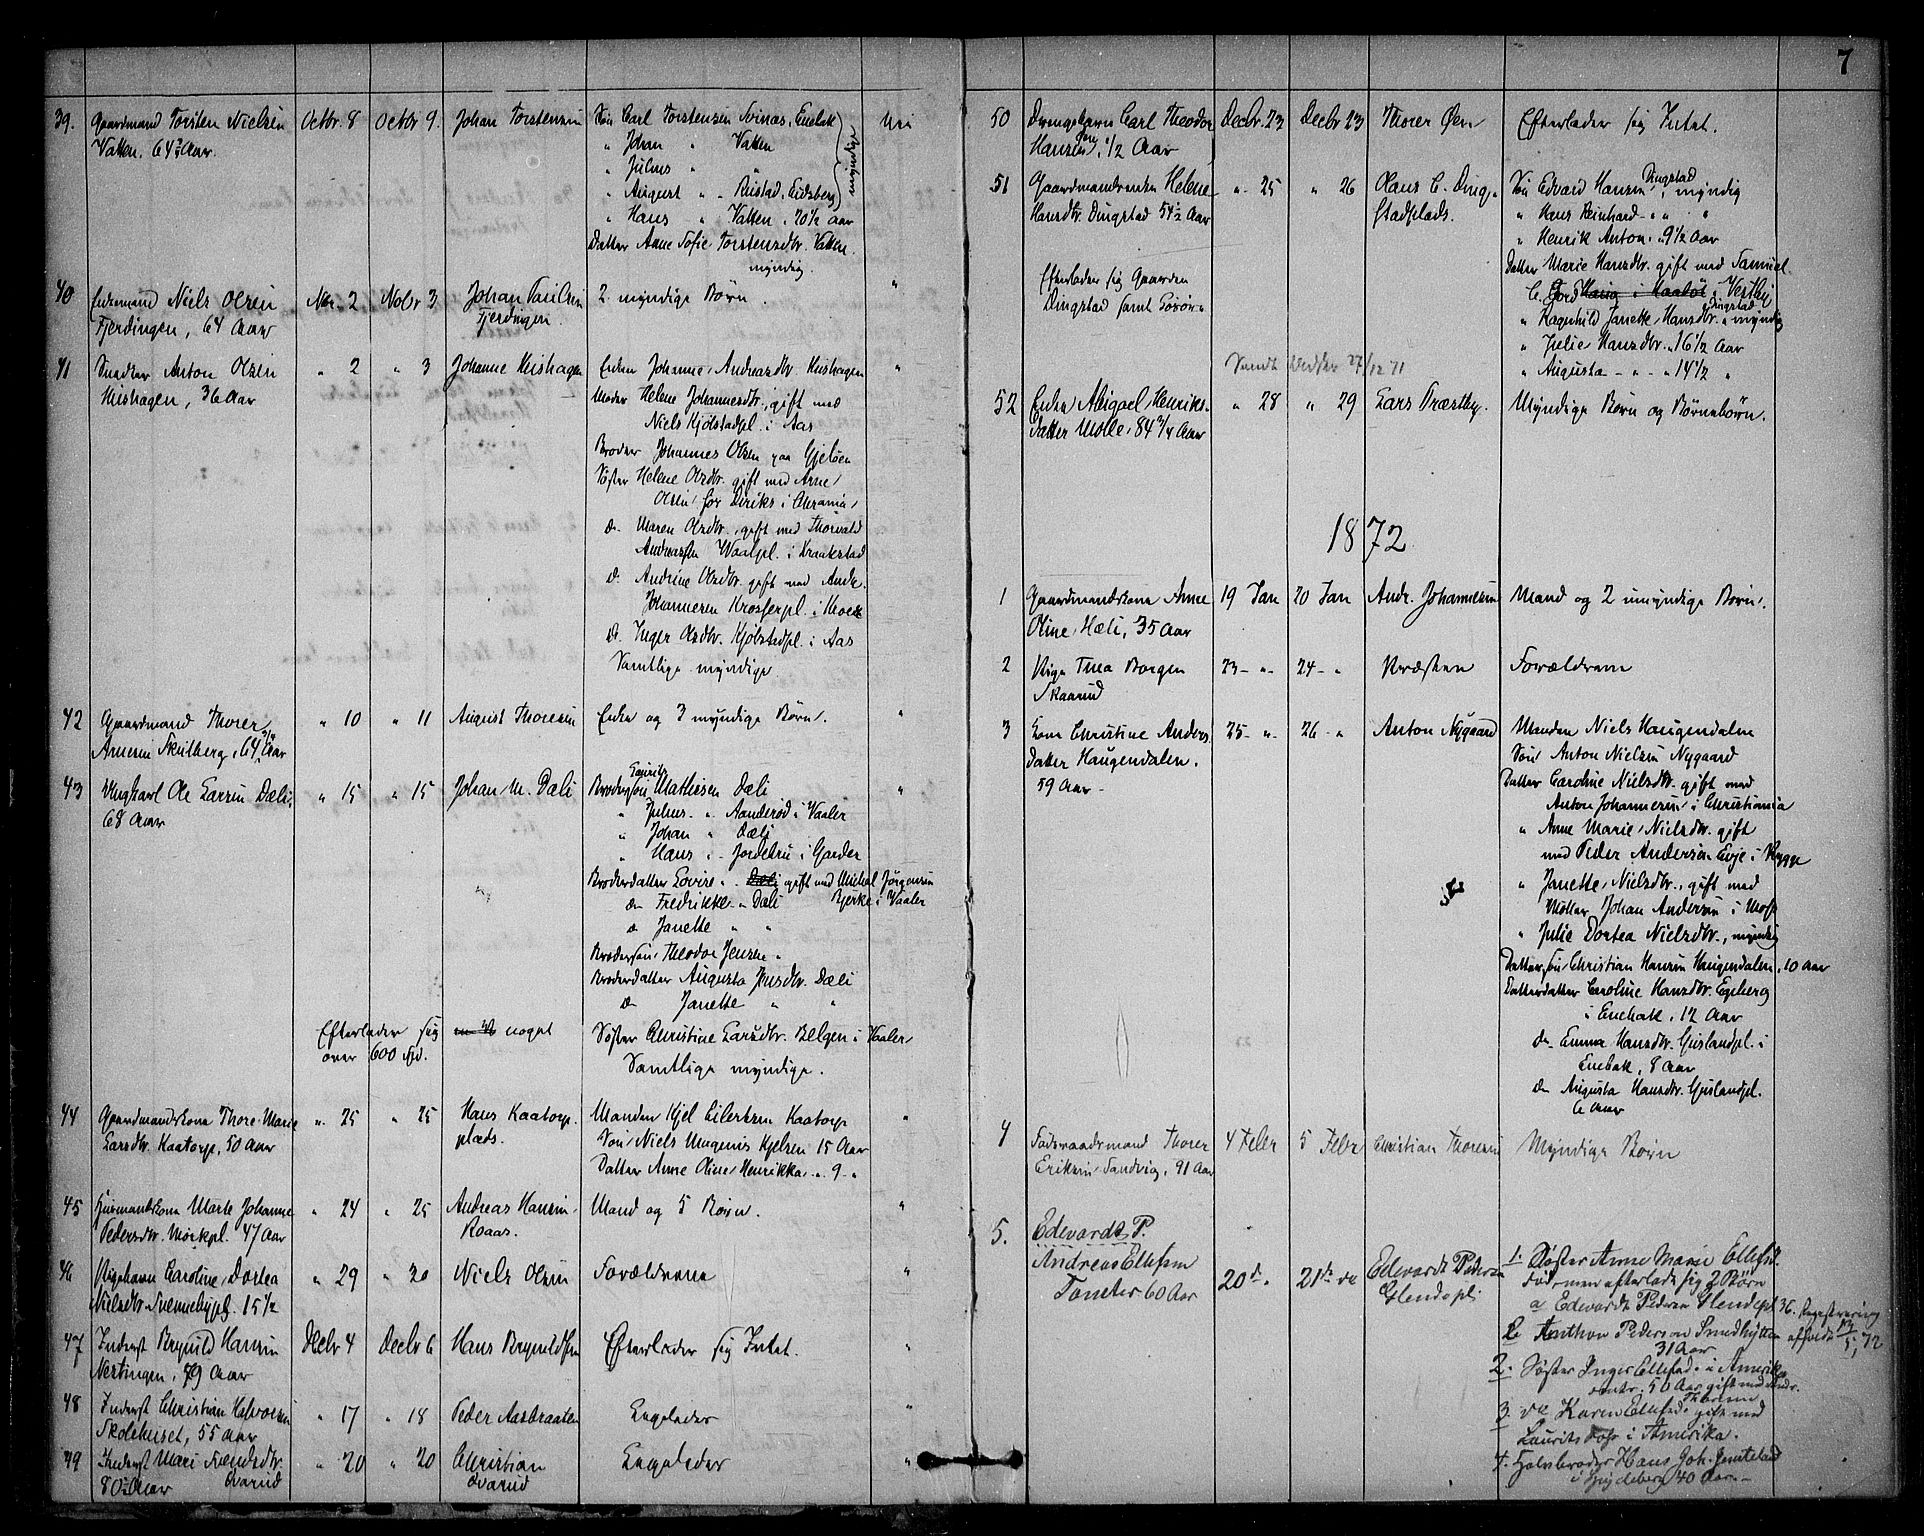 7
39. Gaardmand Torsten Nielsen Octbr. 8 Octbr 9. Johan Torstensen Søn Carl Torstensen Svinas, Enebak
Vatten. 64 Aar. " Johan " Vatten
" Julius " "
" August " Rustad, Eidsberg
myndige
" Hans " Vatten, 20½ aar
Datter Anne Sofie Torstensdtr. Vatten.
myndig.
40 Enkemand Niels Olsen Nbr. 2 Nobr 3 Johan Paulsen 2 myndige Børn.
Fjerdingen, 64 Aar Fjerdingen.
41 Snedker Anton Olsen " 2 " 3 Johanne Hushagen Enken Johanne Andreasdtr. Hushagen "
Hushagen, 36 Aar Moder Helene Johannesdtr., gift med
Niels Kjølstadpl. i Aas
Broder Johannes Olsen paa Gjeløen
Søster Helene Olsdtr. gift med Arne
Olsen for Diriks i Chrania
do. Maren Olsdtr., gift med Thorvald
Andreassen Waalpl. i Kraakstad
do. Andrine Olsdtr. gift med Andr.
Johannesen Krosserpl. i
do. Inger Olsdtr. Kjølstadpl. i Aas
Samtlige myndige.
42 Gaardmand Thorer " 10 " 11 August Thoresen Enke og 3 myndige Børn. "
Arnesen Skulberg, 64 Aar
43 Ungkarl Ole Larsen Dæli, " 15 " 15 Johan M. Dæli Brodersøn Mathiesen Dæli "
68 Aar " Julius " Aanderød i Vaaler
" Johan " Dæli
" Hans " Jordetru i Garder
Broderdatter Lovise " Dæli gift med Michal Jørgensen
do Fredrikke " Dæli Bjerke i Vaaler
do Janette " "
Brodersøn Theodor Jensen "
Broderdatter Augusta Jensdtr. Dæli
do Janette " "
Efterlader sig noget Søster Christine Larsdtr. Belgen i Vaaler
over 600 Spd. Samtlige myndige.
44 Gaardmandskone Thore Marie " 25 " 25 Hans Kaatorp- Manden Kjel Eilertsen Kaatorp "
Larsdtr. Kaatorp, 50 Aar plads. Søn Niels Magnus Kjelsen 15 Aar
Datter Anne Oline Henrikka " 9 "
45 Husmandskone Marte Johanne " 24 " 25 Andreas Hansen Mand og 5 Børn. "
Pedersdtr. Mørkpl. 47 Aar Roaas.
46 Pigebarn Caroline Dortea " 29 " 30 Niels Olsen Forældrene "
Nielsdtr. Svennebypl. 15½
47 Inderst Brynild Hansen Decbr 4 Decbr 6 Hans Brynildsen Efterlader sig Intet. "
Nestingen, 79 Aar
48 Inderst Christian Halvorsen " 17 " 18 Peder Aasbraaten Eneleder
Skolehuset, 55 Aar
49 Inderst Mari Svendsdtr. " 20 " 20 Christian Eneleder "
80 Aar Ovarud Ovarud
50 Drengebarn Carl Theodor Decbr. 23 Decbr 23 Thorer Øen Efterlader sig Intet.
Hansen Øen, ½ Aar
51 Gaardmandsenke Helene " 25 " 26 Hans C. Ding- Søn Edvard Hansen Dingstad, myndig
Hansdtr. Dingstad 54½ Aar stadplads. " Hans Reinhard " " "
" Henrik Anton " 9½ Aar
Efterlader sig Gaarden Datter Marie Hansdtr. gift med Samuel
Dingstad samt Løsøre C. i Vestby
" Ragnhild Janette Hansdtr. Dingstad myndig
" Julie Hansdtr. 16½ Aar
Sendt 27/12 71 " Augusta " " 14½ "
52 Enke Abigael Henriks- " 28 " 29 Lars Træstby. Myndige Børn og Børnebørn.
datter Molle, 84¼ Aar
1872
1 Gaardmandskone Anne 19 Jan 20 Jan Andr. Johannesen Mand og 2 umyndige Børn.
Oline Hæli, 35 Aar
2 Pige Thea Borgen 23 " 24 " Præsten Forældrene
Skaarud
3 Kone Christine Anders- 25 " 26 " Anton Nygaard Manden Niels Haugendalen
datter Haugendalen. Søn Anton Nielsen Nygaard
59 Aar Datter Caroline Nielsdtr. gift med
Anton Johannesen i Christiania
" Anne Marie Nielsdtr. gift
med Peder Andersen Evje i Rygge
" Janette Nielsdtr., gift med
Møller Johan Andersen i Moss
" Julie Dortea Nielsdtr., myndig
Dattersøn Christian Hansen Haugendalen, 10 Aar
Datterdatter Caroline Hansdtr. Egeberg
i Enebak, 12 Aar
do. Emma Hansdtr. Gjislandpl. i
Enebak, 8 Aar
do Augusta Hansdtr. Gjislandpl.
6 Aar
4 Føderaadsmand Thorer 4 Febr 5 Febr Christian Thoresen Myndige Børn
Eriksen Sandvig, 91 Aar
5. Edevardt P.
Andreas Ellefsen 20de 21de do Edevardt Pedersen 1. Søster Anne Marie Ellefsd.
Tomter 60 Aar Glendepl. død, men efterladt sig 2 Børn
a Edevardt Pedersen Glendepl. 36. Registrering
b Anthon Pederson Smedhytten afholdt 13/5, 72
31 Aar
2. Søster Inger Ellefsd. i Amerika
50 Aar gift med Andr.
3. do Karen Ellefsd. gift med
Laurits Foss i Amerika.
4. Halvbroder Hans Joh.
i Spydeberg 40 Aar.